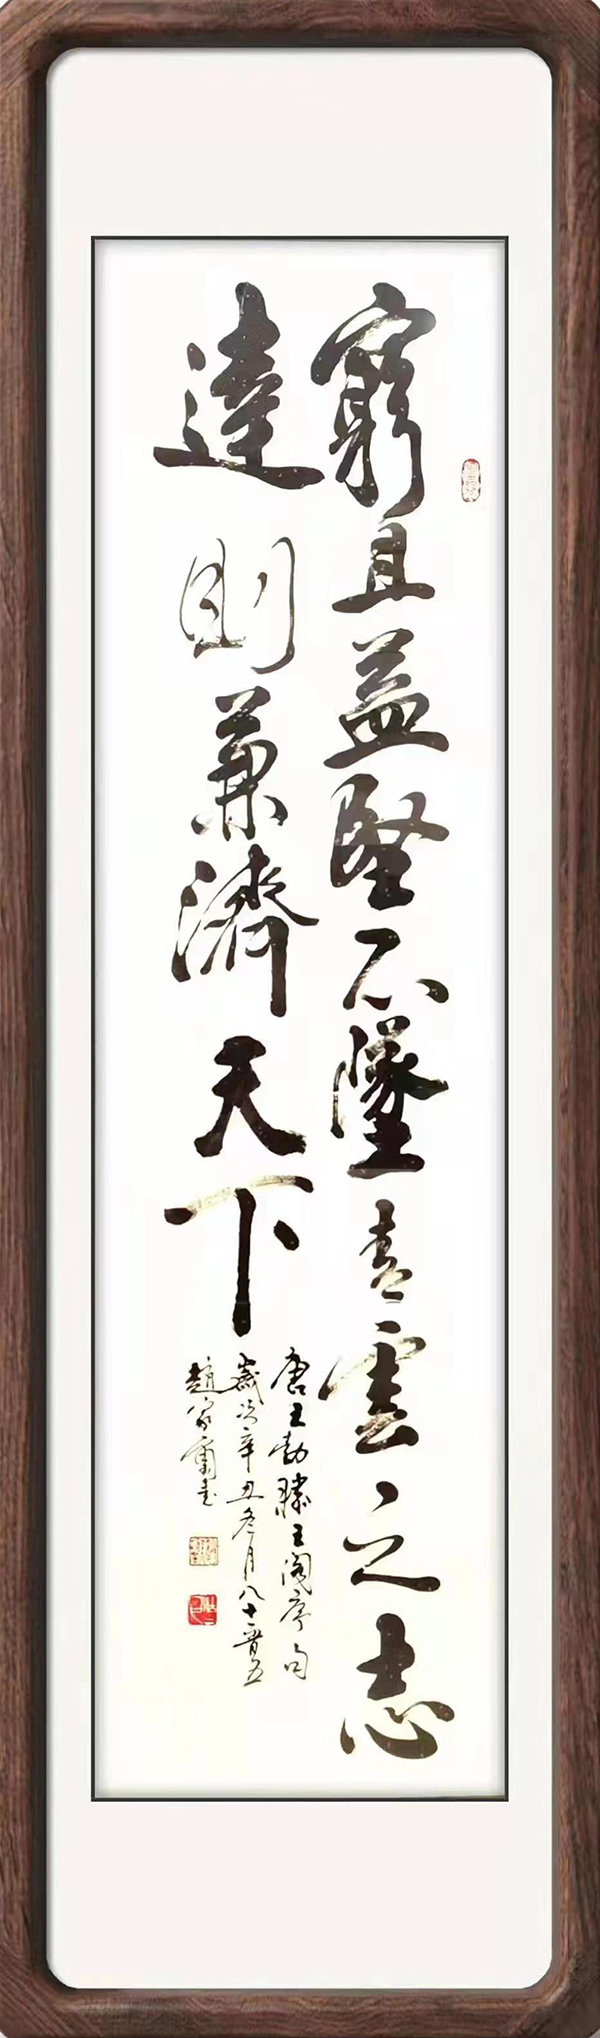 窮且益堅不墜青雲之志
達則兼濟天下
唐王勃滕王閣序句
歲次辛丑冬月八十晋五
趙家庸書